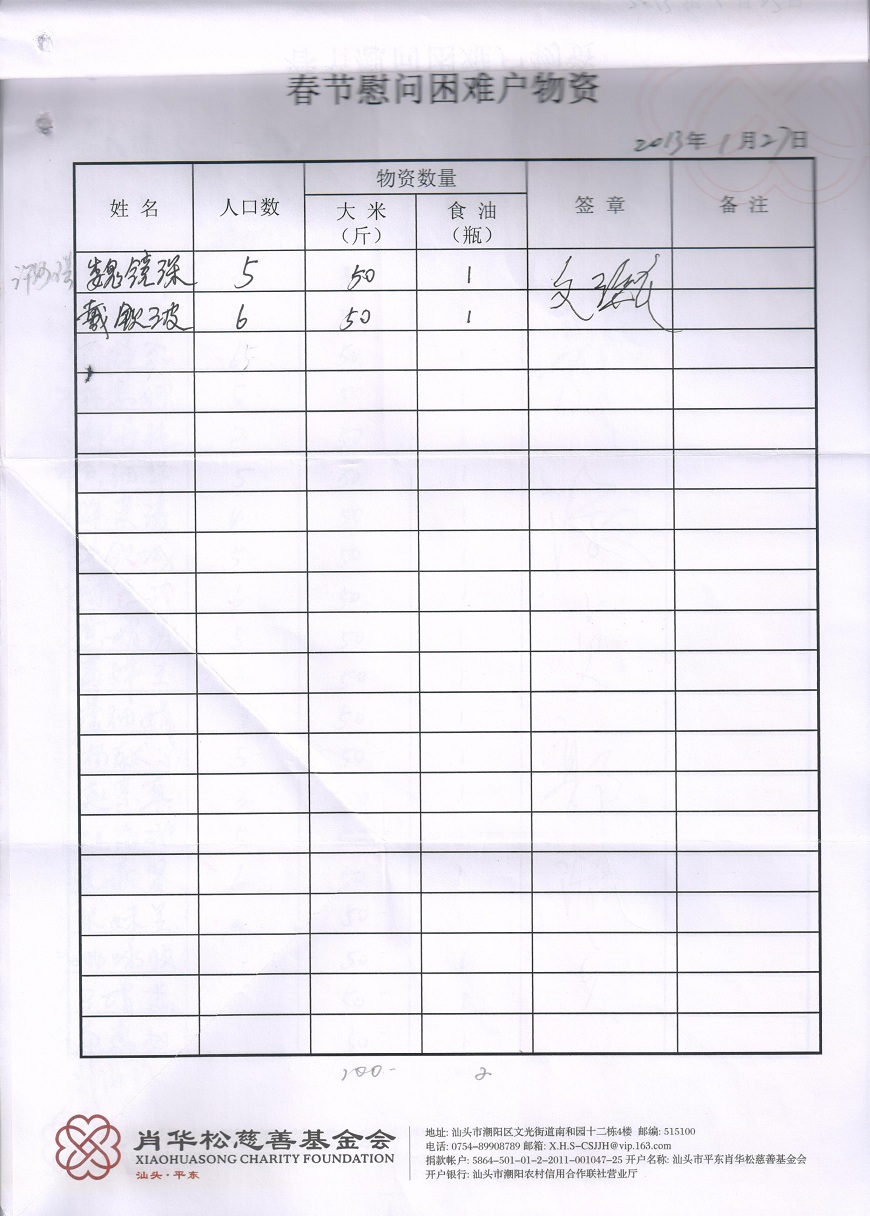 春节慰问困难户物资
2013年1月27日
姓名 人口数 物资数量 签章 备注
大米（斤） 食油（瓶）
魏镜深 5 50 1
戴钦波 6 50 1
100- 2
肖华松慈善基金会
XIAOHUASONG CHARITY FOUNDATION
汕头·平东
地址: 汕头市潮阳区文光街道南和园十二栋4楼 邮编: 515100
电话: 0754-89908789 邮箱: X.H.S-CSJJH@vip.163.com
捐款帐户: 5864-501-01-2-2011-001047-25 开户名称: 汕头市平东肖华松慈善基金会
开户银行: 汕头市潮阳农村信用合作联社营业厅